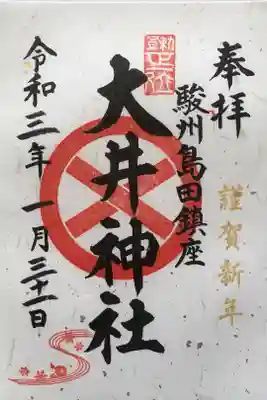 奉拝
謹賀新年
駿州島田鎮座
大井神社
令和三年一月三十一日